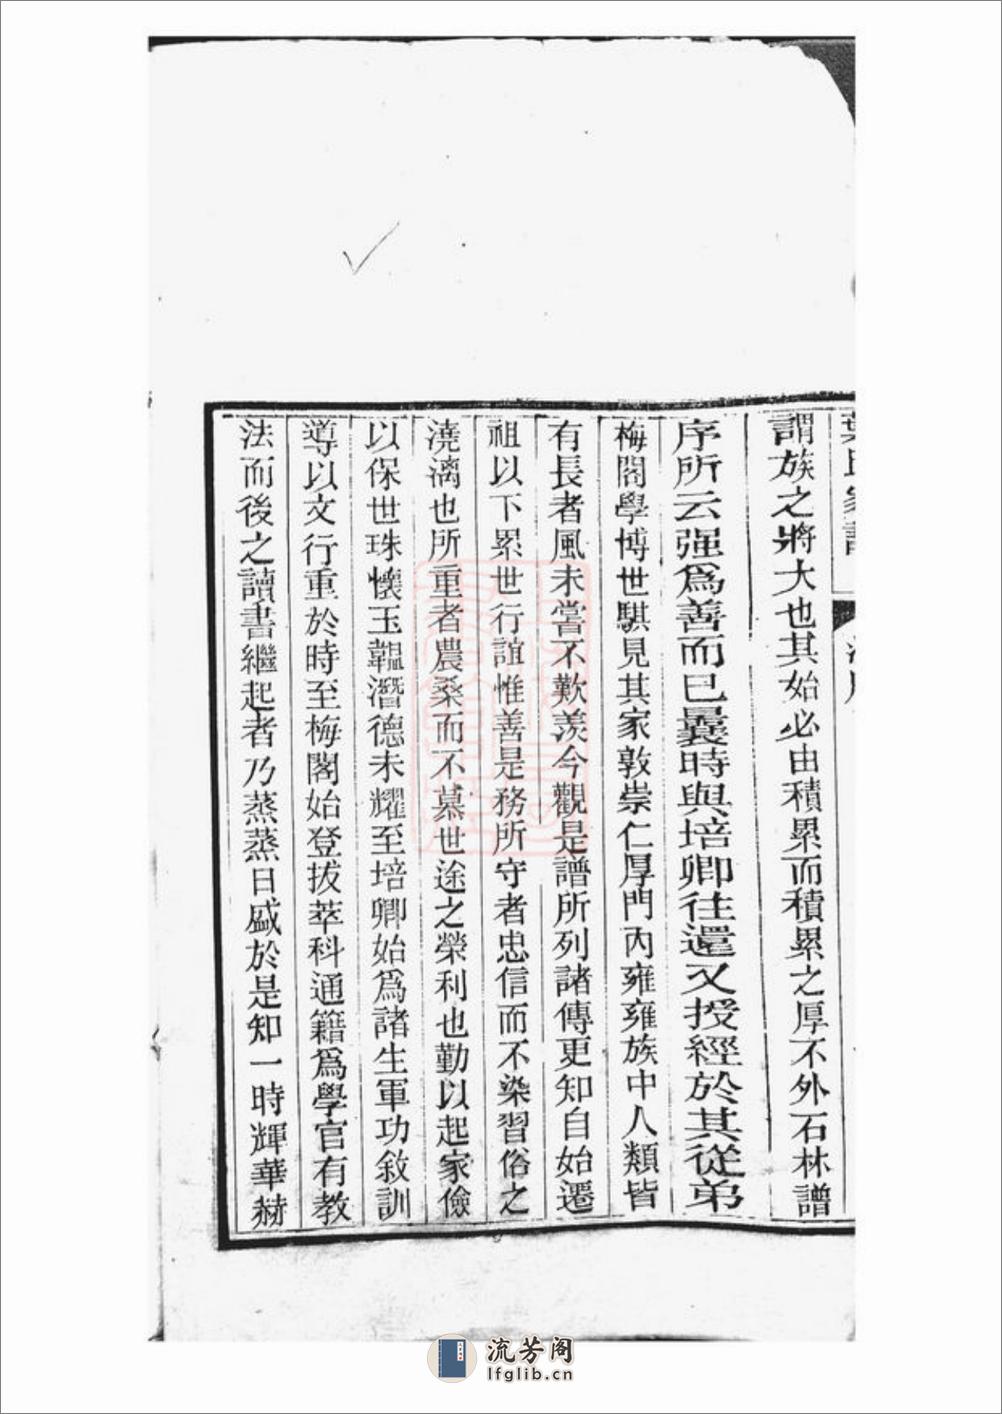 葉氏家譜
謂族之將大也其始必由積累而積累之厚不外石林譜
序所云强爲善而已曩時與培卿往還又授經於其從弟
梅閣學博世騏見其家敦崇仁厚門內雍雍族中人類皆
有長者風未嘗不歎羨今觀是譜所列諸傳更知自始遷
祖以下累世行誼惟善是務所守者忠信而不染習俗之
澆漓也所重者農桑而不慕世途之榮利也勤以起家儉
以保世珠懷玉韞潛德未耀至培卿始爲諸生軍功敘訓
導以文行重於時至梅閣始登拔萃科通籍爲學官有教
法而後之讀書繼起者乃蒸蒸日盛於是知一時輝華赫
流芳阁
lfglib.cn